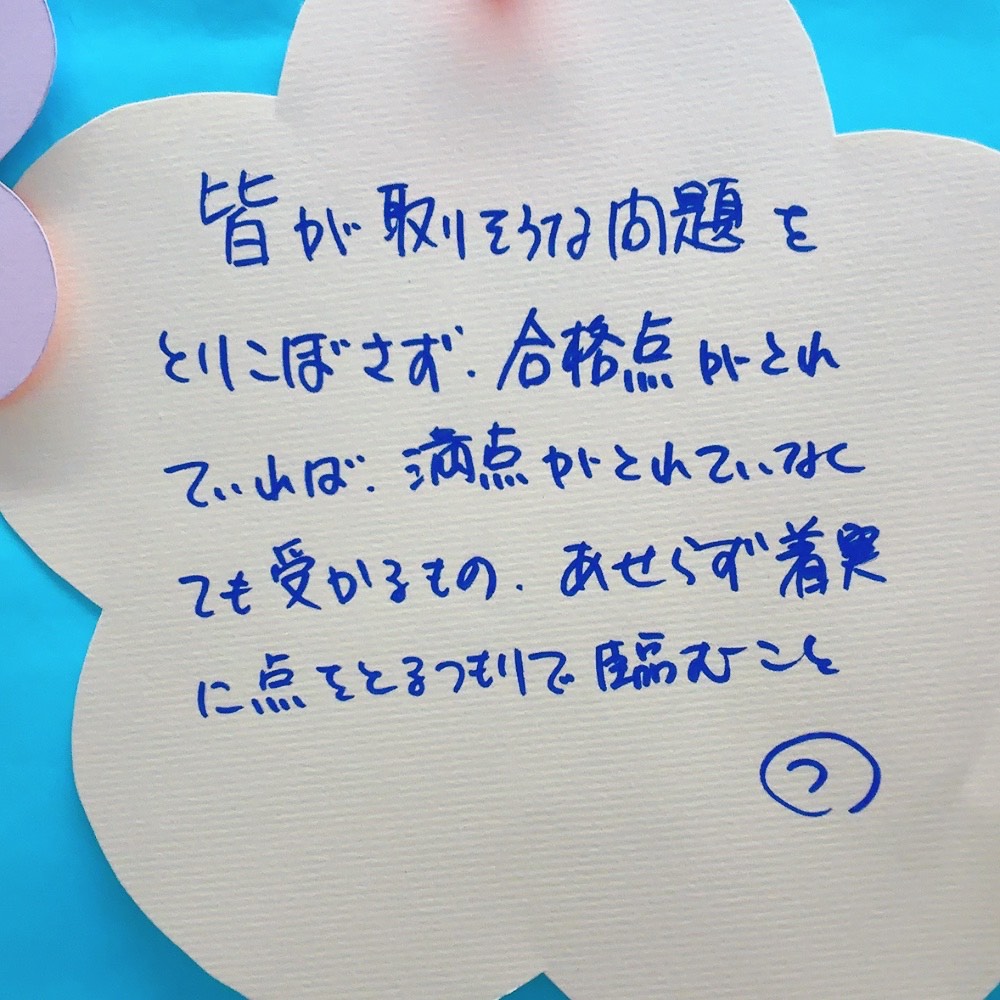 皆が取りそうな問題を
とりこぼさず、合格点がとれ
ていれば、満点がとれていなく
ても受かるもの、あせらず着実
に点をとるつもりで臨むこと
つ